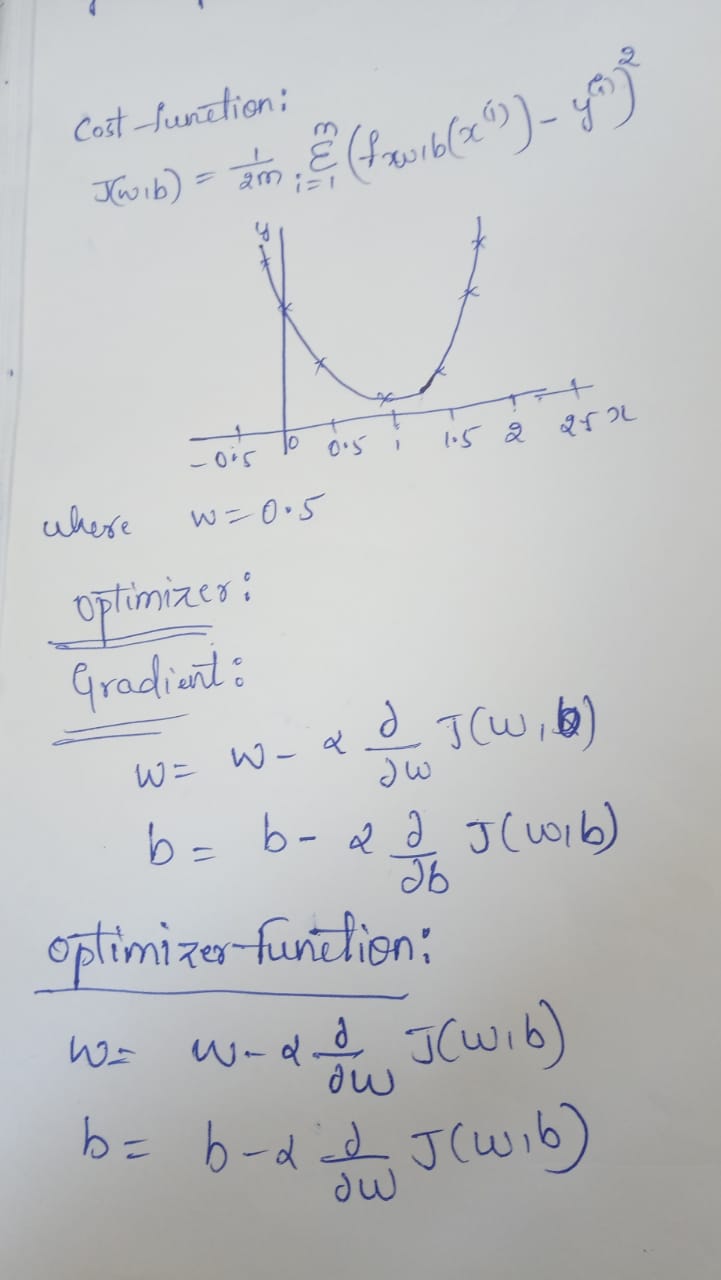 Cost function:
J(w,b) = 1/2m Σ i=1 m (fxw,b(x^(i)) - y^(i))^2
y
-0.5 0 0.5 1 1.5 2 2.5 x
where w=0.5
optimizer:
Gradient:
w= w- α ∂/∂w J(w,b)
b= b- α ∂/∂b J(w,b)
optimizer function:
w= w-α ∂/∂w J(w,b)
b= b-α ∂/∂w J(w,b)